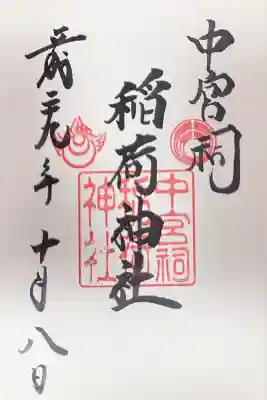 中宮祠
稲荷神社
令和元年十月八日
中宮祠
稲荷
神社